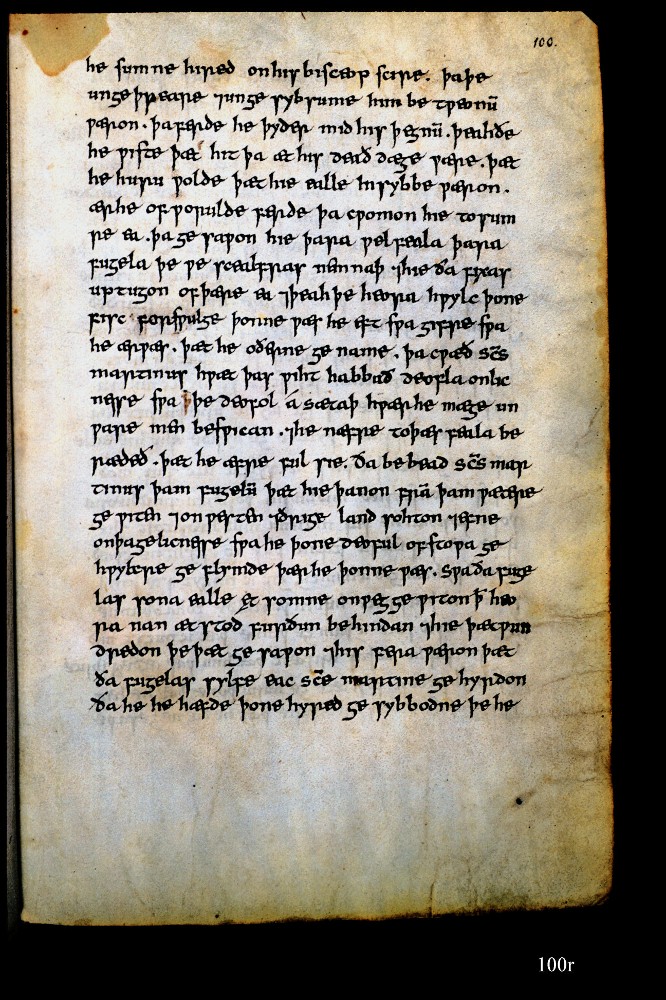 100.
he sumne hired on his bisceop scire. þa þe
unge þƿeare ⁊unge sybsume him be tƿeonū
ƿæron. þa ferde he þyder mid his þegnū. þeah ðe
he ƿiste þæt hit þa æt his dead dæge ƿære. þæt
he huru ƿolde þæt hie ealle In sybbe ƿæron.
ær he of ƿorulde ferde þa cƿomon hie to sum
re ea. þa ge saƿon hie þara ƿel feala þara
fugela þe ƿe scealfras nemnaþ ⁊hie ða fixas
up tugon of þære ea ⁊þeah þe heora hƿylc þone
fisc forsƿulge þonne ƿæs he eft sƿa gifre sƿa
he ær ƿæs. þæt he oðerne ge name. þa cƿæð scs̄
martinus hƿæt þas ƿiht habbað deofla onlic
nesse sƿa þe deofol á sætaþ hƿær he mæge un
ƿare men besƿican. ⁊he næfre to þæs feala be
rædeð. þæt he æfre ful sie. ða be bead scs̄ mar
tinus þam fugelū þæt hie þanon frā þam ƿætere
ge ƿiten ⁊on ƿesten ⁊drige land sohton ⁊efne
on þa gelicnesse sƿa he þone deoful of stoƿa ge
hƿylcre ge flymde þær he þonne ƿæs. sƿa ða fuge
las sona ealle æt somne on ƿeg ge ƿiton þ̄ heo
ra nan æt stod furðun be hindan ⁊hie þæt ƿun
dredon þe þæt ge saƿon ⁊his fera ƿæron þæt
ða fugelas sylfe eac scē martine ge hyrdon
ða he he hæfde þone hyred ge sybbodne þe he
100r